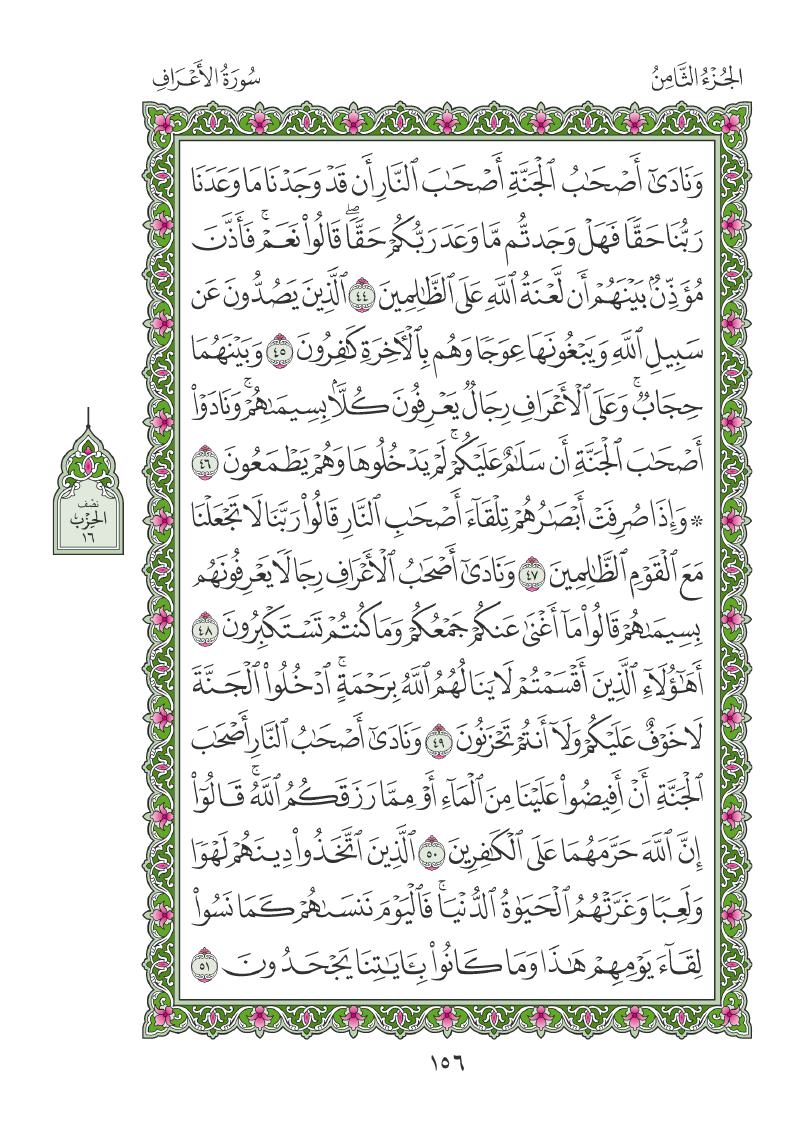 الجُزْءُ الثَّامِنُ
سُورَةُ الأَعْرَافِ
وَنَادَىٰٓ أَصْحَٰبُ ٱلْجَنَّةِ أَصْحَٰبَ ٱلنَّارِ أَن قَدْ وَجَدْنَا مَا وَعَدَنَا
رَبُّنَا حَقًّا فَهَلْ وَجَدتُّم مَّا وَعَدَ رَبُّكُمْ حَقًّاۖ قَالُوا۟ نَعَمْۚ فَأَذَّنَ
مُؤَذِّنٌۢ بَيْنَهُمْ أَن لَّعْنَةُ ٱللَّهِ عَلَى ٱلظَّٰلِمِينَ ٤٤ ٱلَّذِينَ يَصُدُّونَ عَن
سَبِيلِ ٱللَّهِ وَيَبْغُونَهَا عِوَجًا وَهُم بِٱلْءَاخِرَةِ كَٰفِرُونَ ٤٥ وَبَيْنَهُمَا
حِجَابٌۚ وَعَلَى ٱلْأَعْرَافِ رِجَالٌ يَعْرِفُونَ كُلًّۢا بِسِيمَىٰهُمْۚ وَنَادَوْا۟
أَصْحَٰبَ ٱلْجَنَّةِ أَن سَلَٰمٌ عَلَيْكُمْۚ لَمْ يَدْخُلُوهَا وَهُمْ يَطْمَعُونَ ٤٦
* وَإِذَا صُرِفَتْ أَبْصَٰرُهُمْ تِلْقَآءَ أَصْحَٰبِ ٱلنَّارِ قَالُوا۟ رَبَّنَا لَا تَجْعَلْنَا
مَعَ ٱلْقَوْمِ ٱلظَّٰلِمِينَ ٤٧ وَنَادَىٰٓ أَصْحَٰبُ ٱلْأَعْرَافِ رِجَالًا يَعْرِفُونَهُم
بِسِيمَىٰهُمْ قَالُوا۟ مَآ أَغْنَىٰ عَنكُمْ جَمْعُكُمْ وَمَا كُنتُمْ تَسْتَكْبِرُونَ ٤٨
أَهَٰٓؤُلَآءِ ٱلَّذِينَ أَقْسَمْتُمْ لَا يَنَالُهُمُ ٱللَّهُ بِرَحْمَةٍۚ ٱدْخُلُوا۟ ٱلْجَنَّةَ
لَا خَوْفٌ عَلَيْكُمْ وَلَآ أَنتُمْ تَحْزَنُونَ ٤٩ وَنَادَىٰٓ أَصْحَٰبُ ٱلنَّارِ أَصْحَٰبَ
ٱلْجَنَّةِ أَنْ أَفِيضُوا۟ عَلَيْنَا مِنَ ٱلْمَآءِ أَوْ مِمَّا رَزَقَكُمُ ٱللَّهُۚ قَالُوٓا۟
إِنَّ ٱللَّهَ حَرَّمَهُمَا عَلَى ٱلْكَٰفِرِينَ ٥٠ ٱلَّذِينَ ٱتَّخَذُوا۟ دِينَهُمْ لَهْوًا
وَلَعِبًا وَغَرَّتْهُمُ ٱلْحَيَوٰةُ ٱلدُّنْيَاۚ فَٱلْيَوْمَ نَنسَىٰهُمْ كَمَا نَسُوا۟
لِقَآءَ يَوْمِهِمْ هَٰذَا وَمَا كَانُوا۟ بِـَٔايَٰتِنَا يَجْحَدُونَ ٥١
نِصْف
الحِزْب
١٦
١٥٦